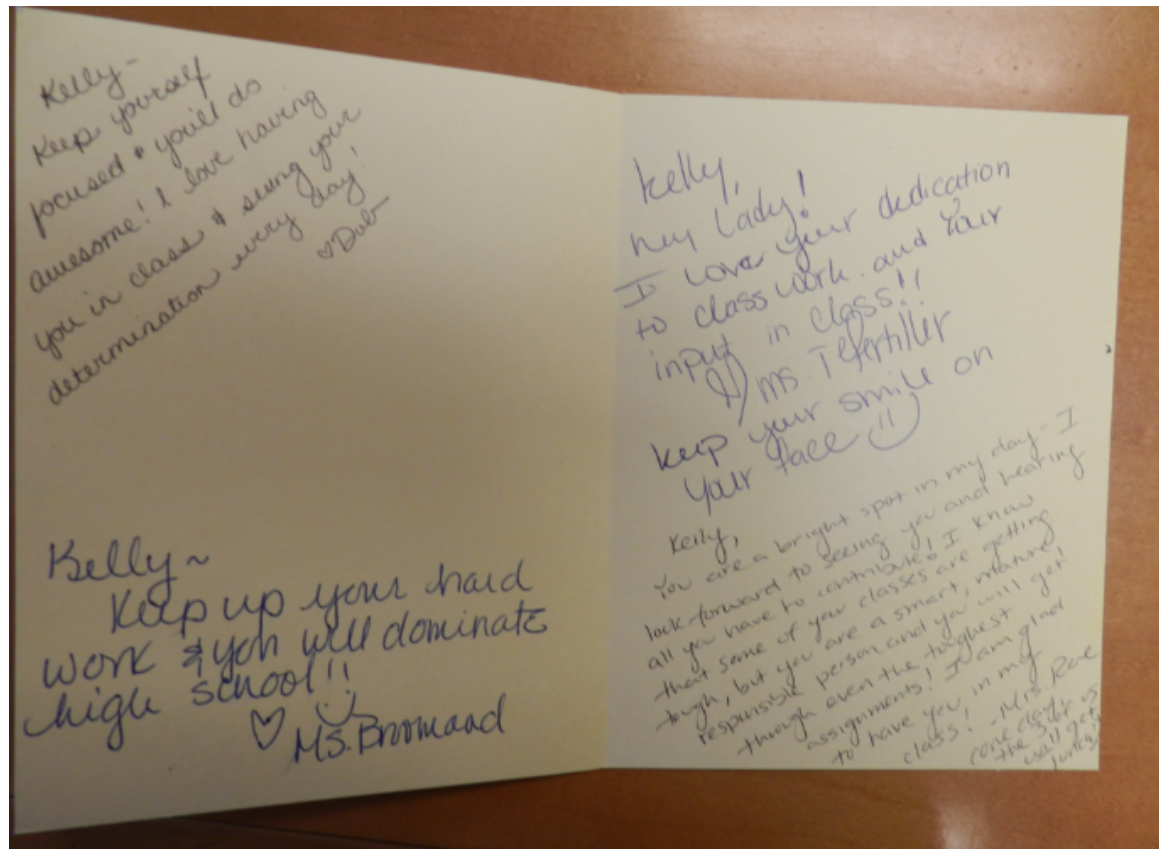 Kelly-
Keep yourself
focused & you'll do
awesome! I love having
you in class & seeing your
determination every day!
♡Dub
Kelly~
Keep up your hard
work & you will dominate
high school!!
♡ Ms.
Kelly,
Hey Lady!
I love your dedication
to classwork and your
input in class!!
Ms T
keep your smile on
your face
Kelly,
You are a bright spot in my day - I
look forward to seeing you and hearing
all you have to contribute! I know
that some of your classes are getting
tough, but you are a smart, mature,
responsible person and you will get
through even the toughest
assignments! I am glad
to have you in my
class! -Mrs.
one day
the 3 of us
will get
lunch!